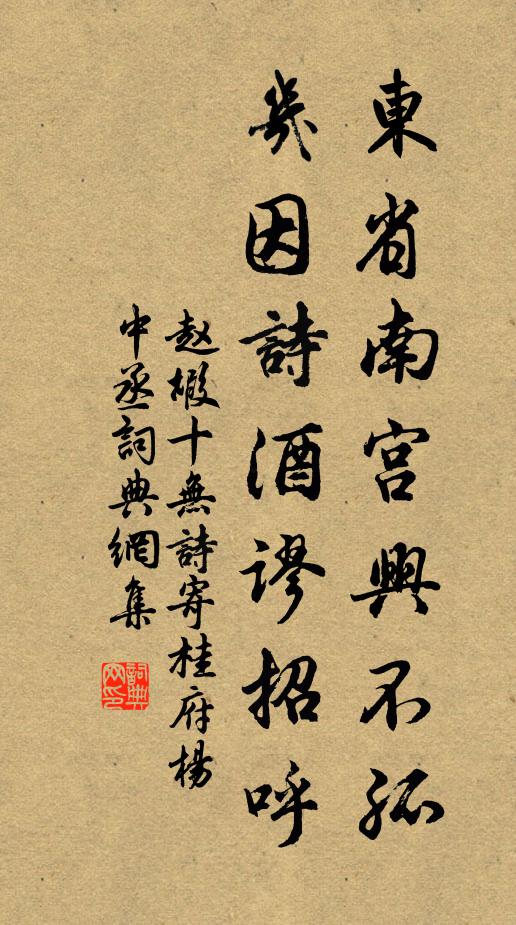 東省南宫興不孤
幾因詩酒謬招呼
赵嘏十無詩寄桂府楊
中丞詞典網集
詞典网印